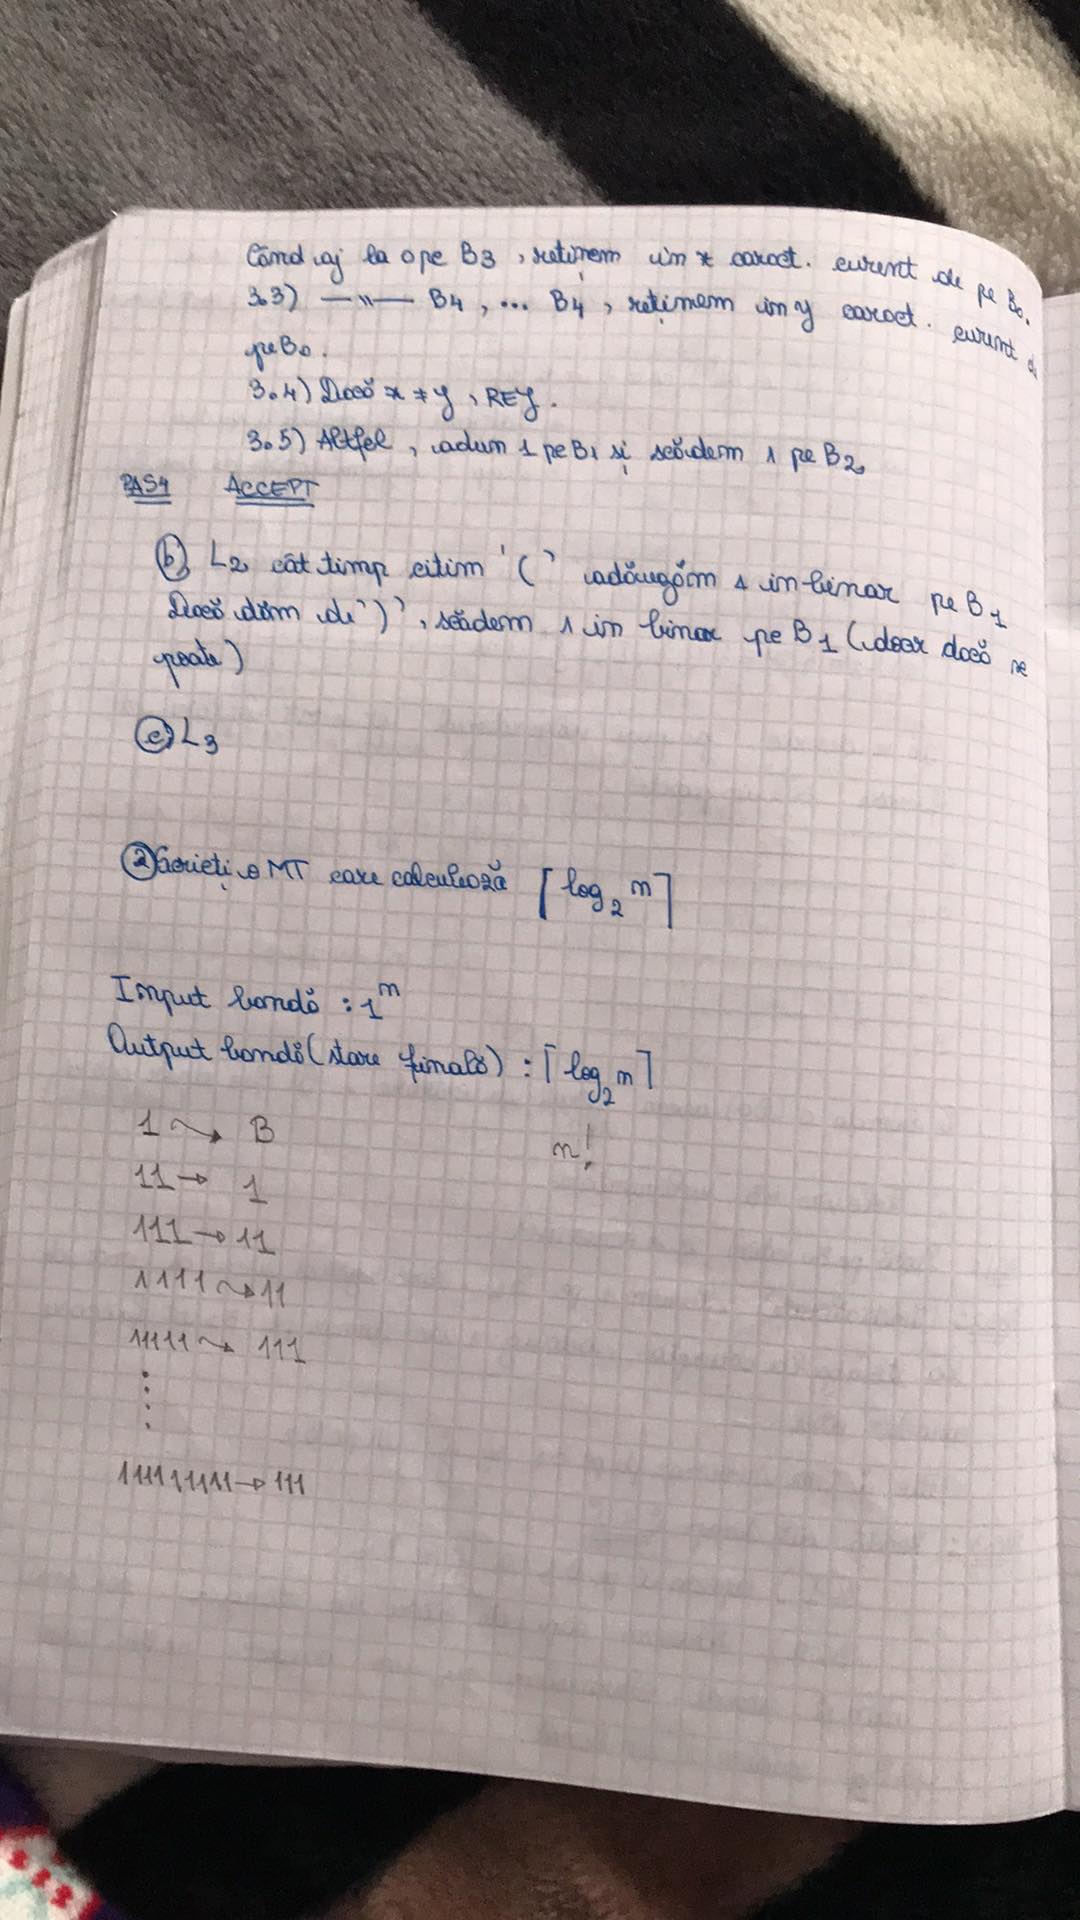 Când aj la 0 pe B3, reținem în x caract. curent de pe B0.
3.3) —"— B4, ... B4, reținem în y caract. curent de
pe B0.
3.4) Dacă x ≠ y, REJ.
3.5) Altfel, adun 1 pe B1 și scădem 1 pe B2
PAS4 ACCEPT
b) L2 cât timp citim '(' adăugăm 1 in binar pe B1
Dacă dăm de ')', scădem 1 in binar pe B1 (doar dacă se
poate)
c) L3
2) Scrieți o MT care calculează ⌈log₂ n⌉
Input bandă : 1ⁿ
Output bandă (stare finală) : ⌈log₂ n⌉
1 → B n!
11 → 1
111 → 11
1111 → 11
11111 → 111
⋮
111111111 → 111